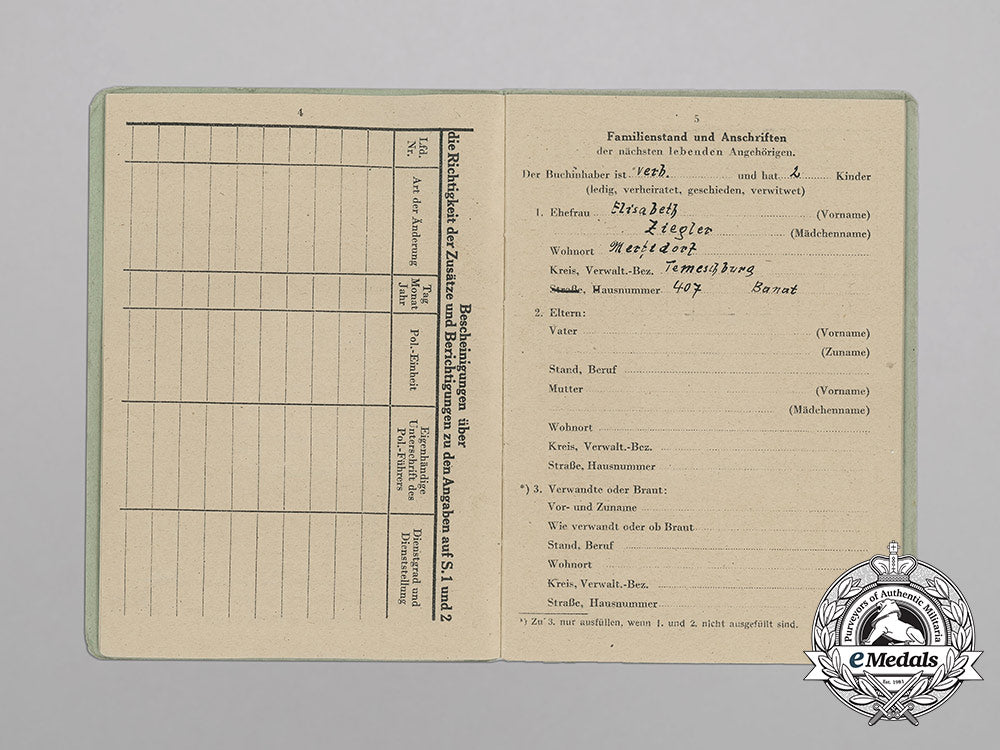 4
Bescheinigungen über
die Richtigkeit der Zusätze und Berichtigungen zu den Angaben auf S. 1 und 2
Lfd. Nr.
Art der Änderung
Tag Monat Jahr
Pol.-Einheit
Eigenhändige Unterschrift des Pol.-Führers
Dienstgrad und Dienststellung
5
Familienstand und Anschriften
der nächsten lebenden Angehörigen.
Der Buchinhaber ist verh. und hat 2 Kinder
(ledig, verheiratet, geschieden, verwitwet)
1. Ehefrau Elisabeth (Vorname)
Ziegler (Mädchenname)
Wohnort
Kreis, Verwalt.-Bez. Temeschburg
Straße, Hausnummer 407 Banat
2. Eltern:
Vater (Vorname)
(Zuname)
Stand, Beruf
Mutter (Vorname)
(Mädchenname)
Wohnort
Kreis, Verwalt.-Bez.
Straße, Hausnummer
*) 3. Verwandte oder Braut:
Vor- und Zuname
Wie verwandt oder ob Braut
Stand, Beruf
Wohnort
Kreis, Verwalt.-Bez.
Straße, Hausnummer
*) Zu 3. nur ausfüllen, wenn 1. und 2. nicht ausgefüllt sind.
Purveyors of Authentic Militaria
eMedals
Est. 1981